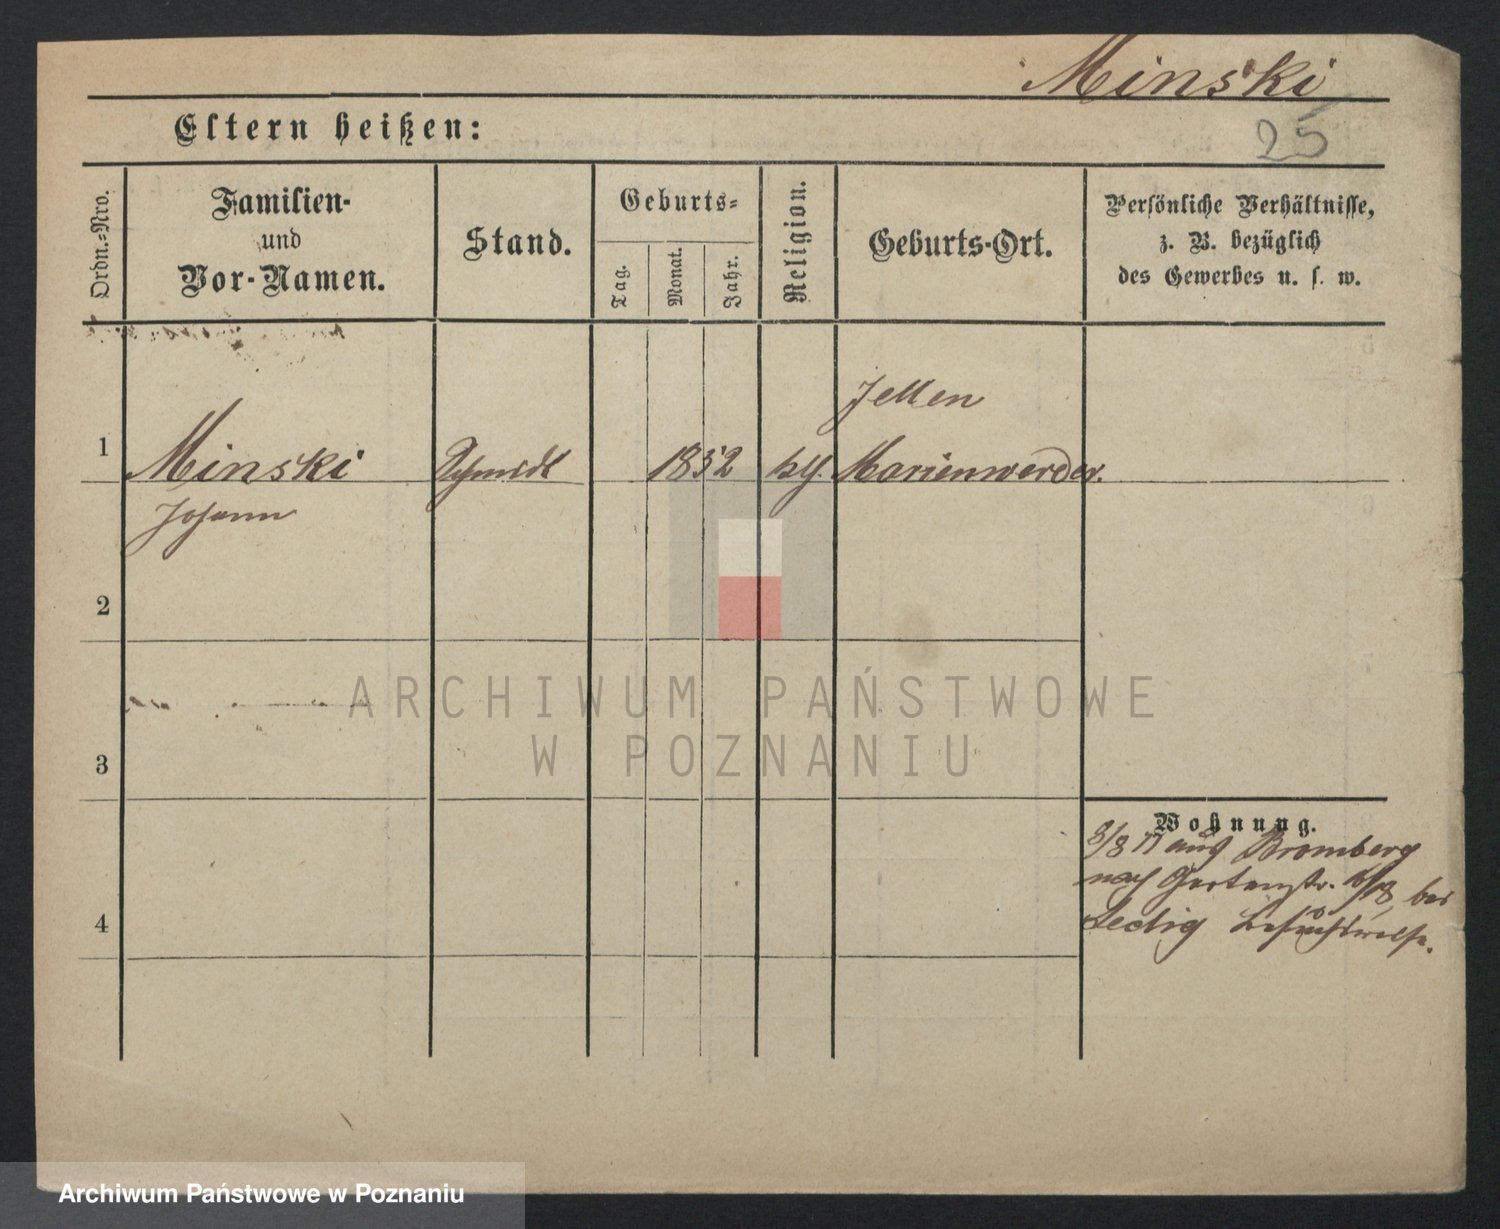 Minski
25
Eltern heißen:
Ordn.-Nro.
Familien-
und
Vor-Namen.
Stand.
Geburts-
Tag.
Monat.
Jahr.
Religion.
Geburts-Ort.
Persönliche Verhältnisse,
z. B. bezüglich
des Gewerbes u. s. w.
Jellen
1 Minski Schmidt 1852 Marienwerder.
Johann
2
3
4
Wohnung.
8/8 77 aus Bromberg
nach Gartenstr. bei
Ledig
ARCHIWUM PAŃSTWOWE
W POZNANIU
Archiwum Państwowe w Poznaniu